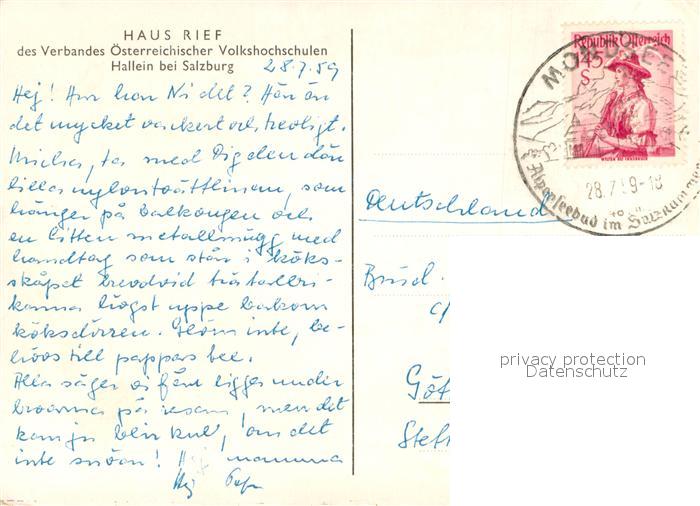 HAUS RIEF
des Verbandes Österreichischer Volkshochschulen
Hallein bei Salzburg
28.7.59
Hej! Hur har Ni det? Här är
det mycket vackert och trevligt.
ta med Dig den där
lilla nylontvättlinan, som
hänger på balkongen och
en liten metallmugg med
handtag som står i köks-
skåpet bredvid
kanna högst uppe bakom
köksdörren. Glöm inte, be-
hövs till pappas
Alla säger vi ligga under
broarna på resan, men det
kan ju bli kul, om det
inte snöar! Hej mamma
Hej
Republik Österreich
1.45
S
MONDSEE
28.7.59-18
Alpenseebad im Salzkammer
Deutschland
Brüd.
c/
Göt
Steff
privacy protection
Datenschutz